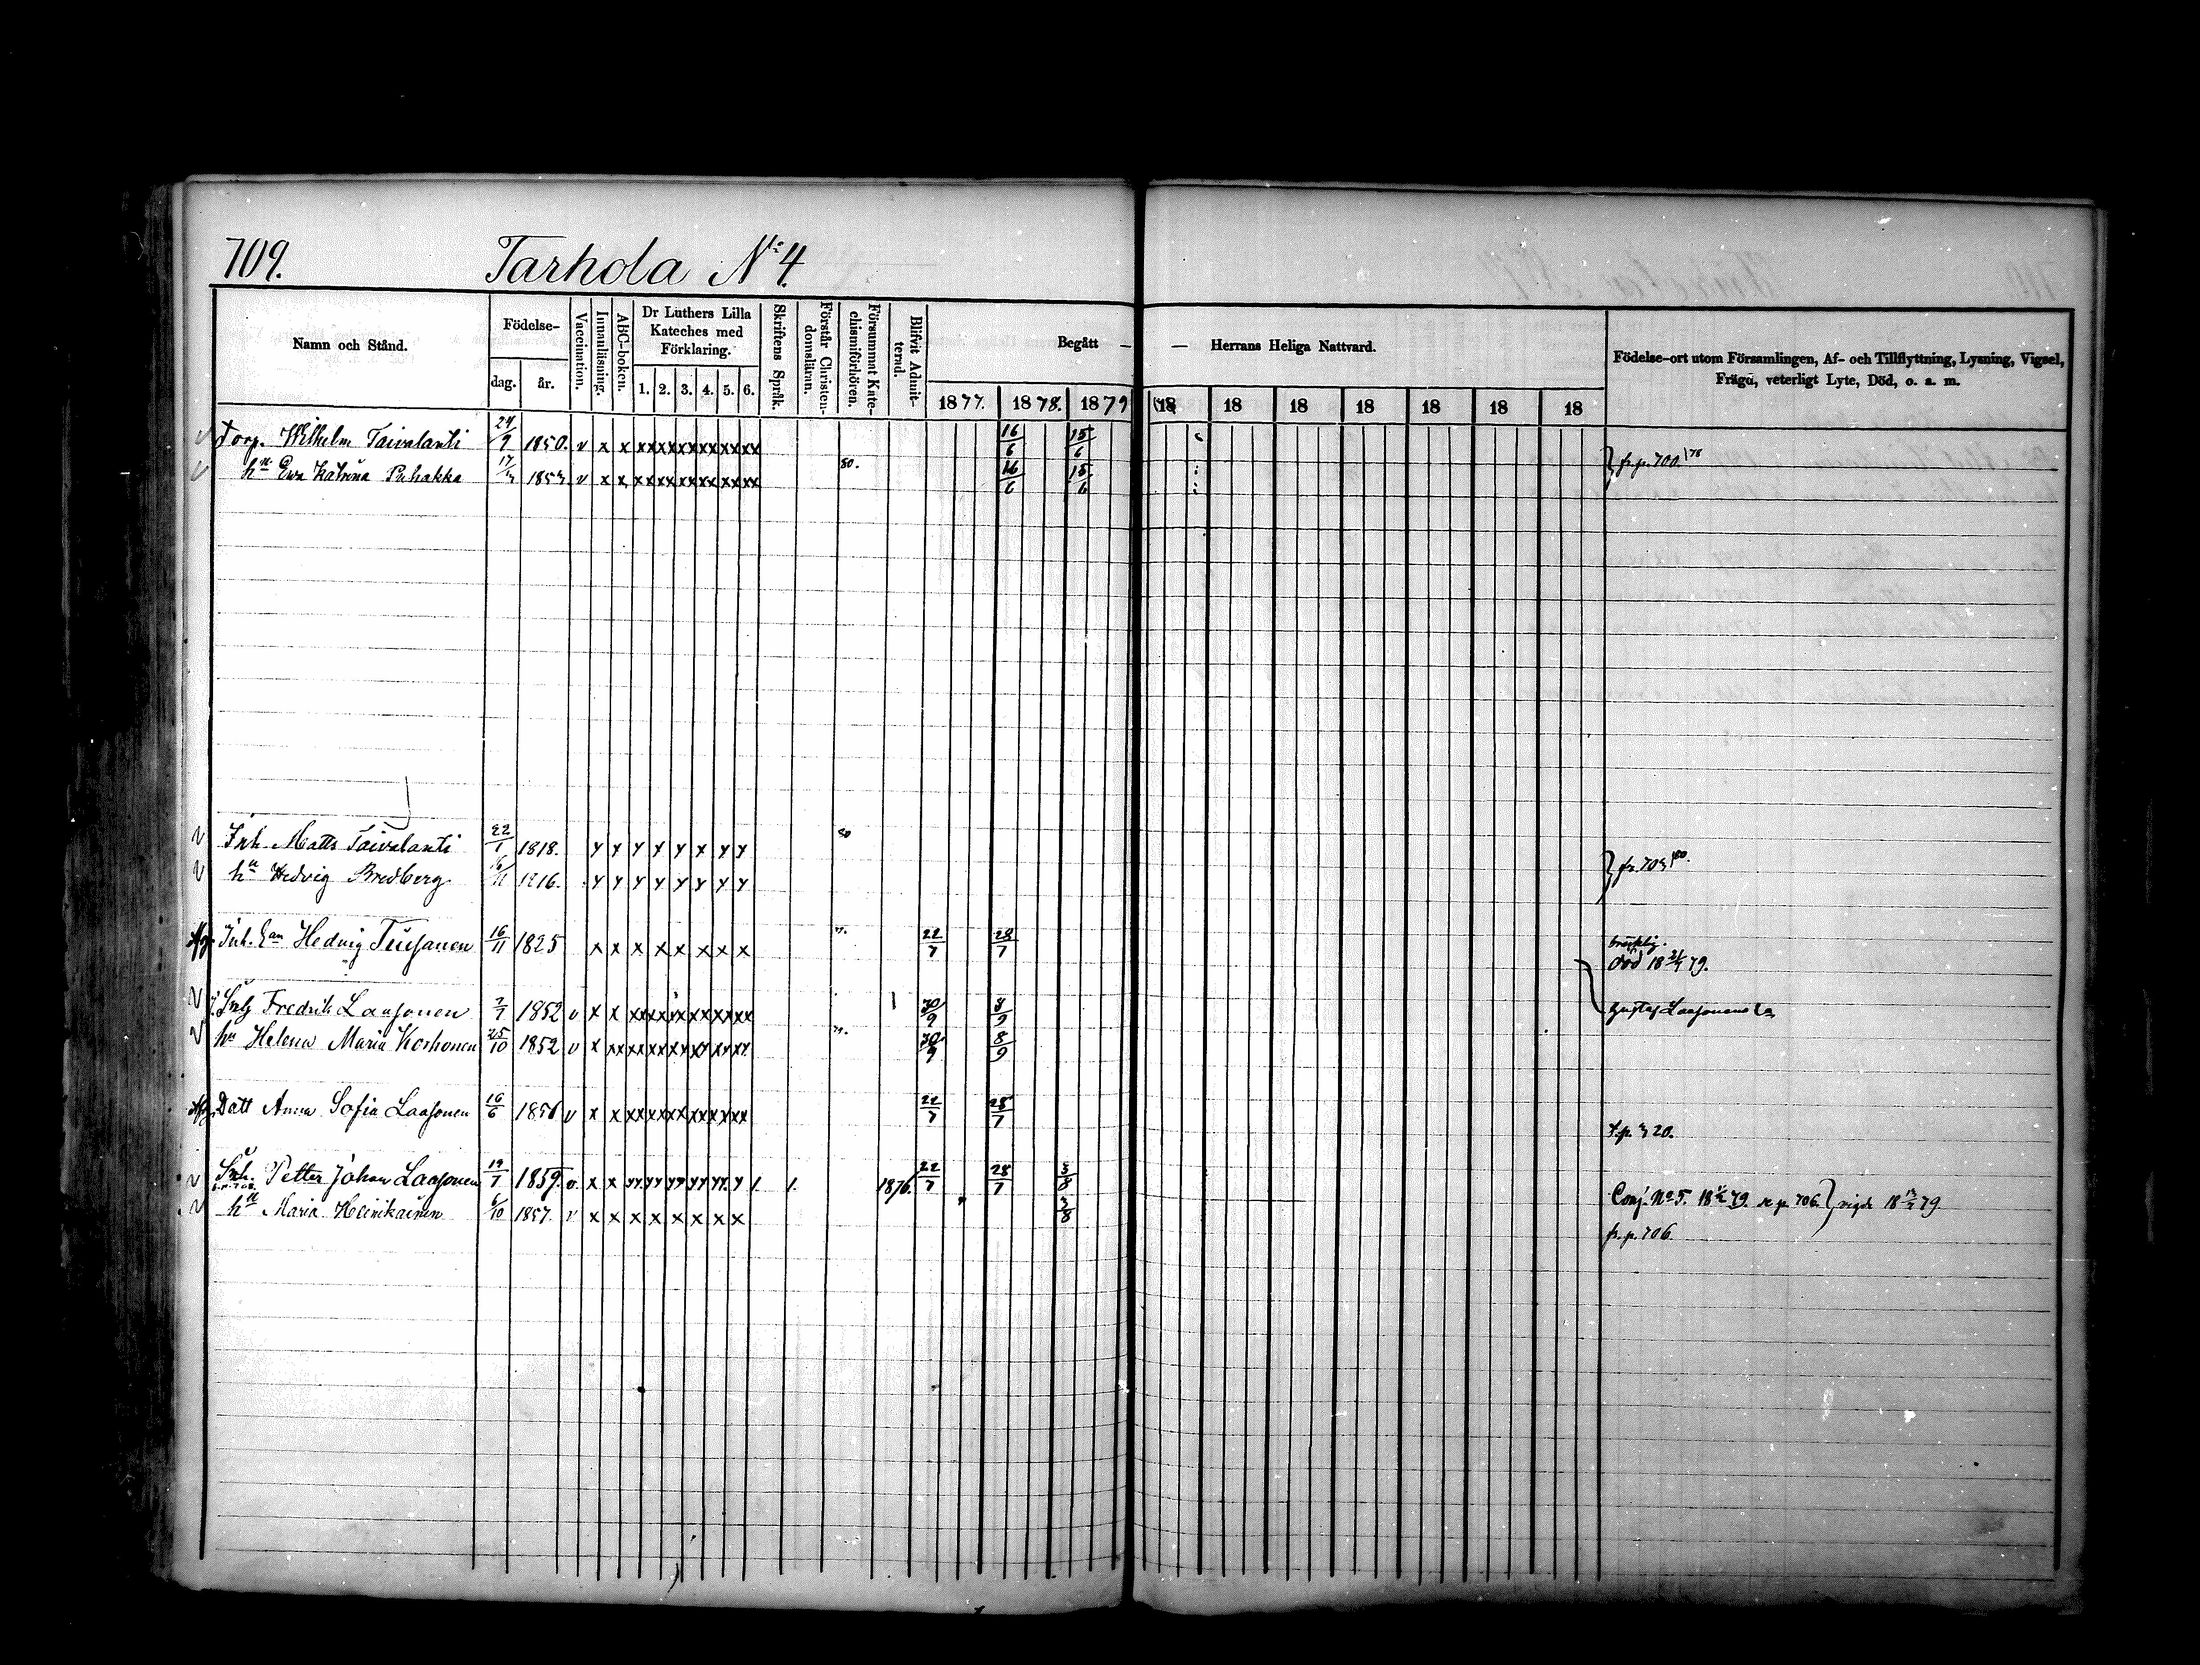 709. Tarhola No 4.
Namn och Stånd.
Födelse-
dag. år.
Vaccination.
Innanläsning.
ABC-boken.
Dr Luthers Lilla
Kateches med
Förklaring.
1. 2. 3. 4. 5. 6.
Skriftens Språk.
Förstår Christen-
domsläran.
Försummat Kate-
chismiförhören.
Blifvit Admit-
terad.
Begått — — Herrans Heliga Nattvard.
1877. 1878. 1879 18 18 18 18 18 18 18
Födelse-ort utom Församlingen, Af- och Tillflyttning, Lysning, Vigsel,
Frägd, veterligt Lyte, Död, o. s. m.
Torp. Wilhelm Taivalanti 24/9 1850. v x x xx xx xx xx xx xx 16/6 15/6
hu Eva Katrina Puhakka 1853 v x x xx xx xx xx xx xx 80. 16/6 15/6 fr. p. 700 /78
Inh. Matts Taivalanti 22/1 1818. y y y y y x y y 80
hu Hedvig Bredberg 1816. y y y y y y y y fr.
Inh. Hedvig 16/11 1825 x x x x x x x x 22/7 28/7 bräcklig.
död 18 79.
Fredrik Laasonen 7/7 1852 v x x xx xx xx xx xx xx 30/9 8/9 Gustaf Laasonens
hu Helena Maria Korhonen 25/10 1852 v x xx xx xx xx xx xx xx 30/9 8/9
Dott Anna Sofia Laasonen 16/6 1856 v x x xx xx xx xx xx xx 22/7 28/7
t. p. 320.
Inh. Petter Johan Laasonen 19/7 1859. v. x x yy yy yy yy yy y 1. 1. 1876. 22/7 28/7 3/8
Conj. No 5. 18 79. se p. 706. vigde 18 79.
hu Maria Heinikainen 6/10 1857. v x x x x x x x x 3/8
fr. p. 706